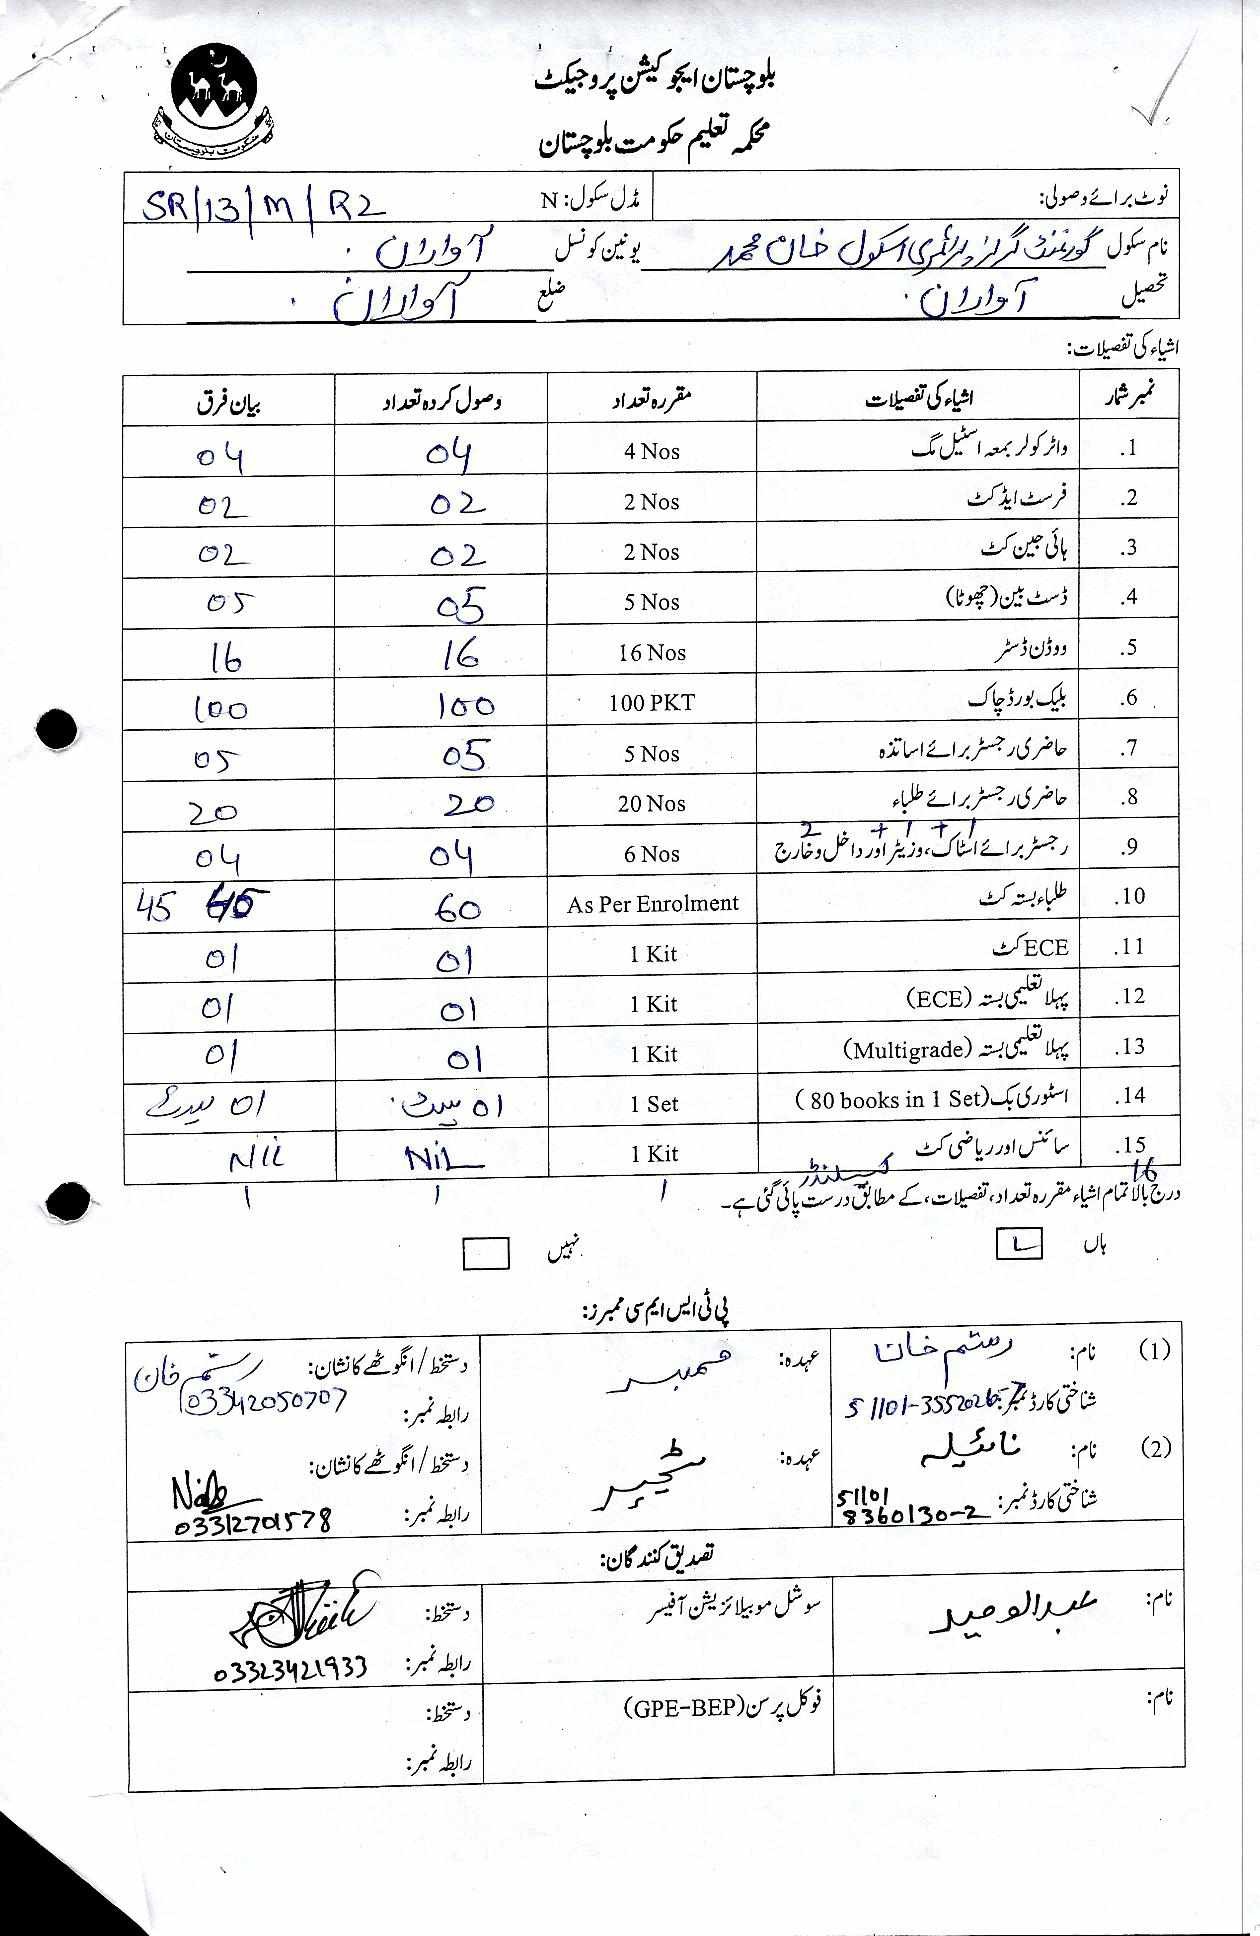 بلوچستان ایجوکیشن پروجیکٹ
محکمہ تعلیم حکومت بلوچستان
حکومت بلوچستان
نوٹ برائے وصولی: مڈل سکول: N SR/13/M/R2
نام سکول گورنمنٹ گرلز پرائمری اسکول خان محمد یونین کونسل آواران
تحصیل آواران ضلع آواران
اشیاء کی تفصیلات:
نمبر شمار اشیاء کی تفصیلات مقررہ تعداد وصول کردہ تعداد بیان فرق
1. واٹر کولر بمعہ اسٹیل مگ 4 Nos 04 04
2. فرسٹ ایڈ کٹ 2 Nos 02 02
3. ہائی جین کٹ 2 Nos 02 02
4. ڈسٹ بین (چھوٹا) 5 Nos 05 05
5. ووڈن ڈسٹر 16 Nos 16 16
6. بلیک بورڈ چاک 100 PKT 100 100
7. حاضری رجسٹر برائے اساتذہ 5 Nos 05 05
8. حاضری رجسٹر برائے طلباء 20 Nos 20 20
2 + 1 + 1
9. رجسٹر برائے اسٹاک، وزیٹر اور داخل و خارج 6 Nos 04 04
10. طلباء بستہ کٹ As Per Enrolment 60 45
11. ECE کٹ 1 Kit 01 01
12. پہلا تعلیمی بستہ (ECE) 1 Kit 01 01
13. پہلا تعلیمی بستہ (Multigrade) 1 Kit 01 01
14. اسٹوری بک (80 books in 1 Set) 1 Set 01 سیٹ 01 سیٹ
15. سائنس اور ریاضی کٹ 1 Kit NiL Nil
16 کیلنڈر 1 1 1
درج بالا تمام اشیاء مقررہ تعداد، تفصیلات، کے مطابق درست پائی گئی ہے۔
ہاں نہیں
پی ٹی ایس ایم سی ممبرز:
(1) نام: رستم خان عہدہ: ممبر دستخط/انگوٹھے کا نشان: رستم خان
شناختی کارڈ نمبر: 51101-3552026-7 رابطہ نمبر: 03342050707
(2) نام: نائیلہ عہدہ: ٹیچر دستخط/انگوٹھے کا نشان:
شناختی کارڈ نمبر: 51101 8360130-2 رابطہ نمبر: 03312701578
تصدیق کنندگان:
نام: عبدالوحید سوشل موبیلائزیشن آفیسر دستخط:
رابطہ نمبر: 03323421933
نام: فوکل پرسن (GPE-BEP) دستخط:
رابطہ نمبر: